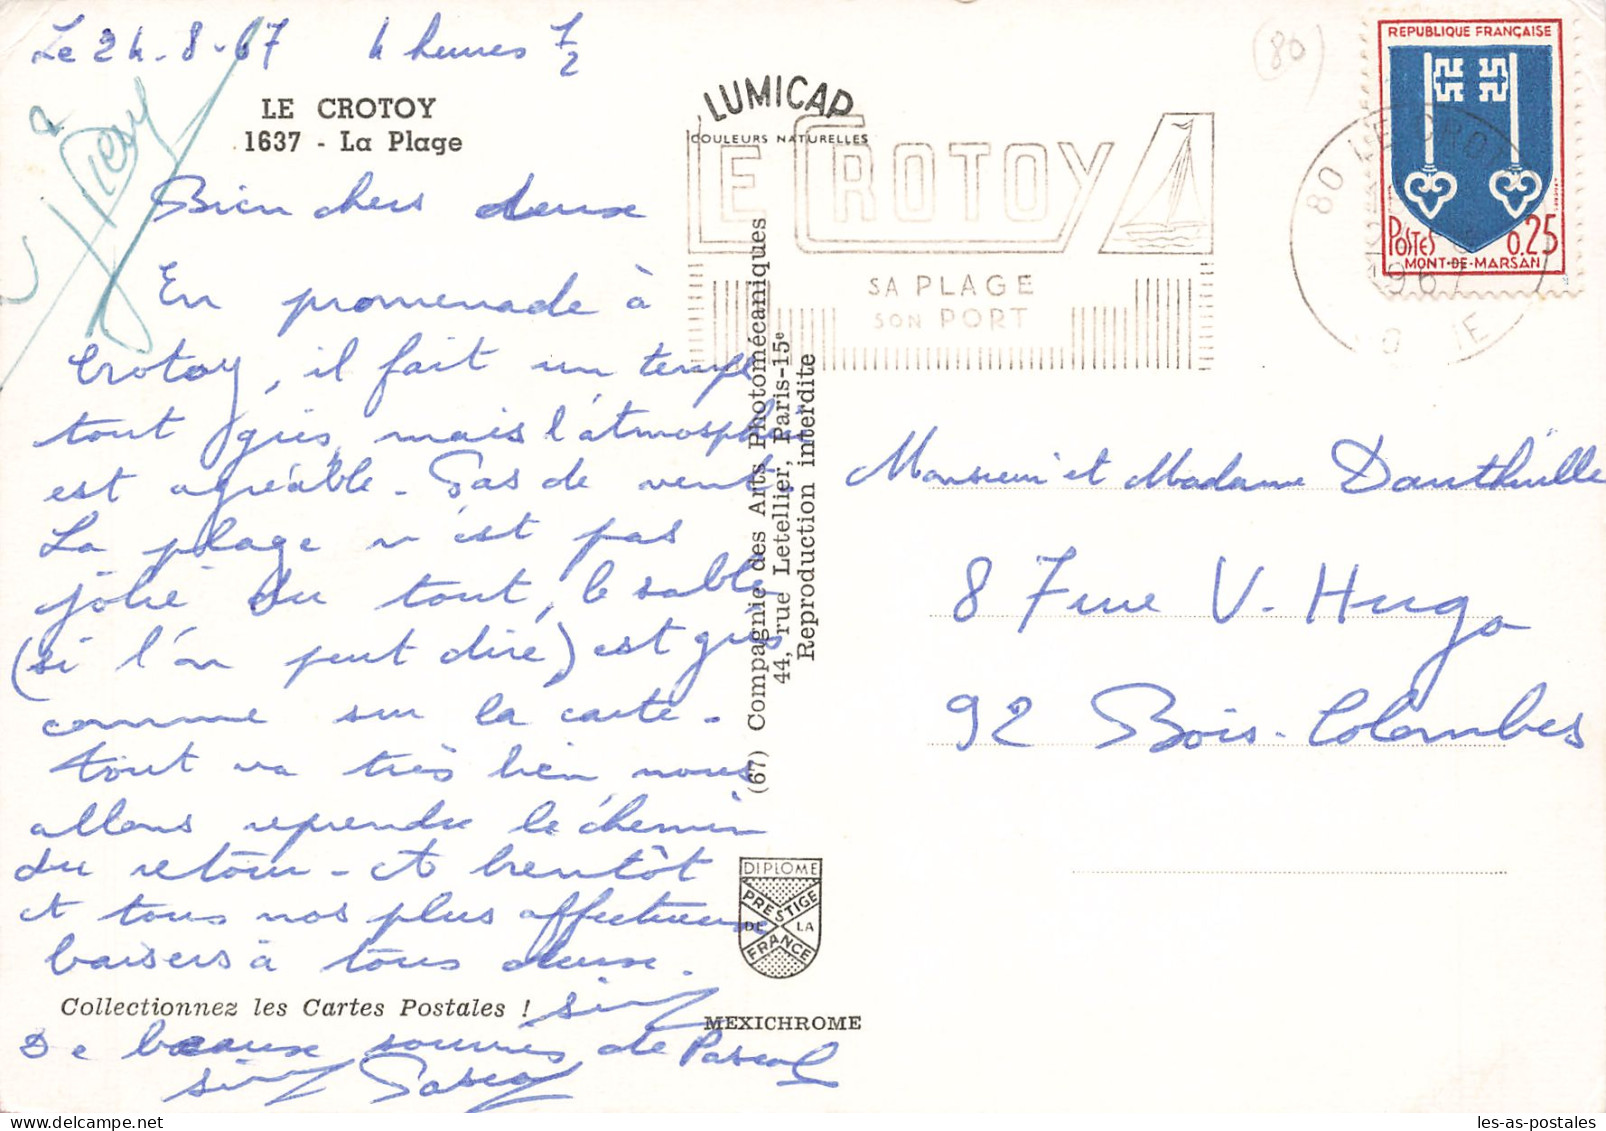 Le 24-8-67 4 heures 1/2
LE CROTOY
1637 - La Plage
Bien chers deux
En promenade à
Crotoy, il fait un temps
tout gris, mais l'atmosphère
est agréable. Pas de vent
La plage n'est pas
jolie du tout, le sable
(si l'on peut dire) est gris
comme sur la carte.
Tout va très bien, nous
allons reprendre le chemin
du retour - A bientôt
et tous nos plus affectueux
baisers à tous deux.
Collectionnez les Cartes Postales !
De beaux sourires de Pascal
LUMICAP
COULEURS NATURELLES
LE CROTOY
SA PLAGE
SON PORT
(67) Compagnie des Arts Photomécaniques
44, rue Letellier, Paris-15e
Reproduction interdite
DIPLOME
PRESTIGE
DE LA
FRANCE
MEXICHROME
(80)
REPUBLIQUE FRANÇAISE
POSTES 0.25
MONT-DE-MARSAN
80 LE CROTOY
1967
Monsieur et Madame Dauthuille
8 rue V. Hugo
92 Bois-Colombes
les-as-postales.com